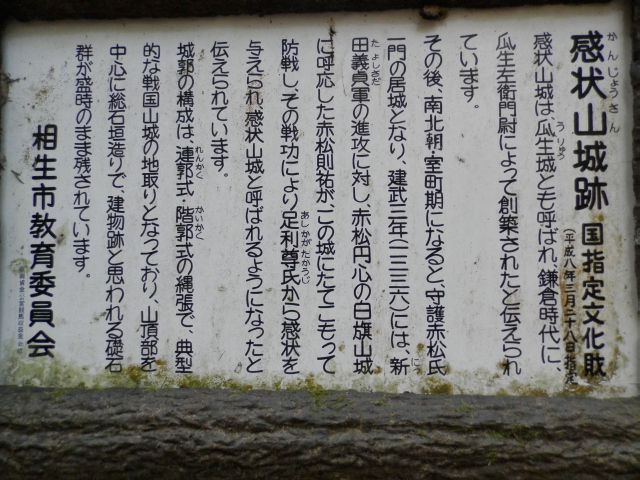 かんじょうさん
感状山城跡 国指定文化財
(平成八年三月二十八日指定)
うりゅう
感状山城は、瓜生城とも呼ばれ、鎌倉時代に、
瓜生左衛門尉によって創築されたと伝えられ
ています。
その後、南北朝・室町期になると、守護赤松氏
一門の居城となり、建武三年(一三三六)には、新
にっ
たよしさだ
田義貞軍の進攻に対し、赤松円心の白旗山城
に呼応した赤松則祐が、この城にたてこもって
防戦し、その戦功により足利尊氏から感状を
あしかがたかうじ
与えられ、感状山城と呼ばれるようになったと
伝えられています。
れんかく かいかく
城郭の構成は、連郭式・階郭式の縄張で、典型
的な戦国山城の地取りとなっており、山頂部を
中心に総石垣造りで、建物跡と思われる礎石
群が盛時のまま残されています。
相生市教育委員会